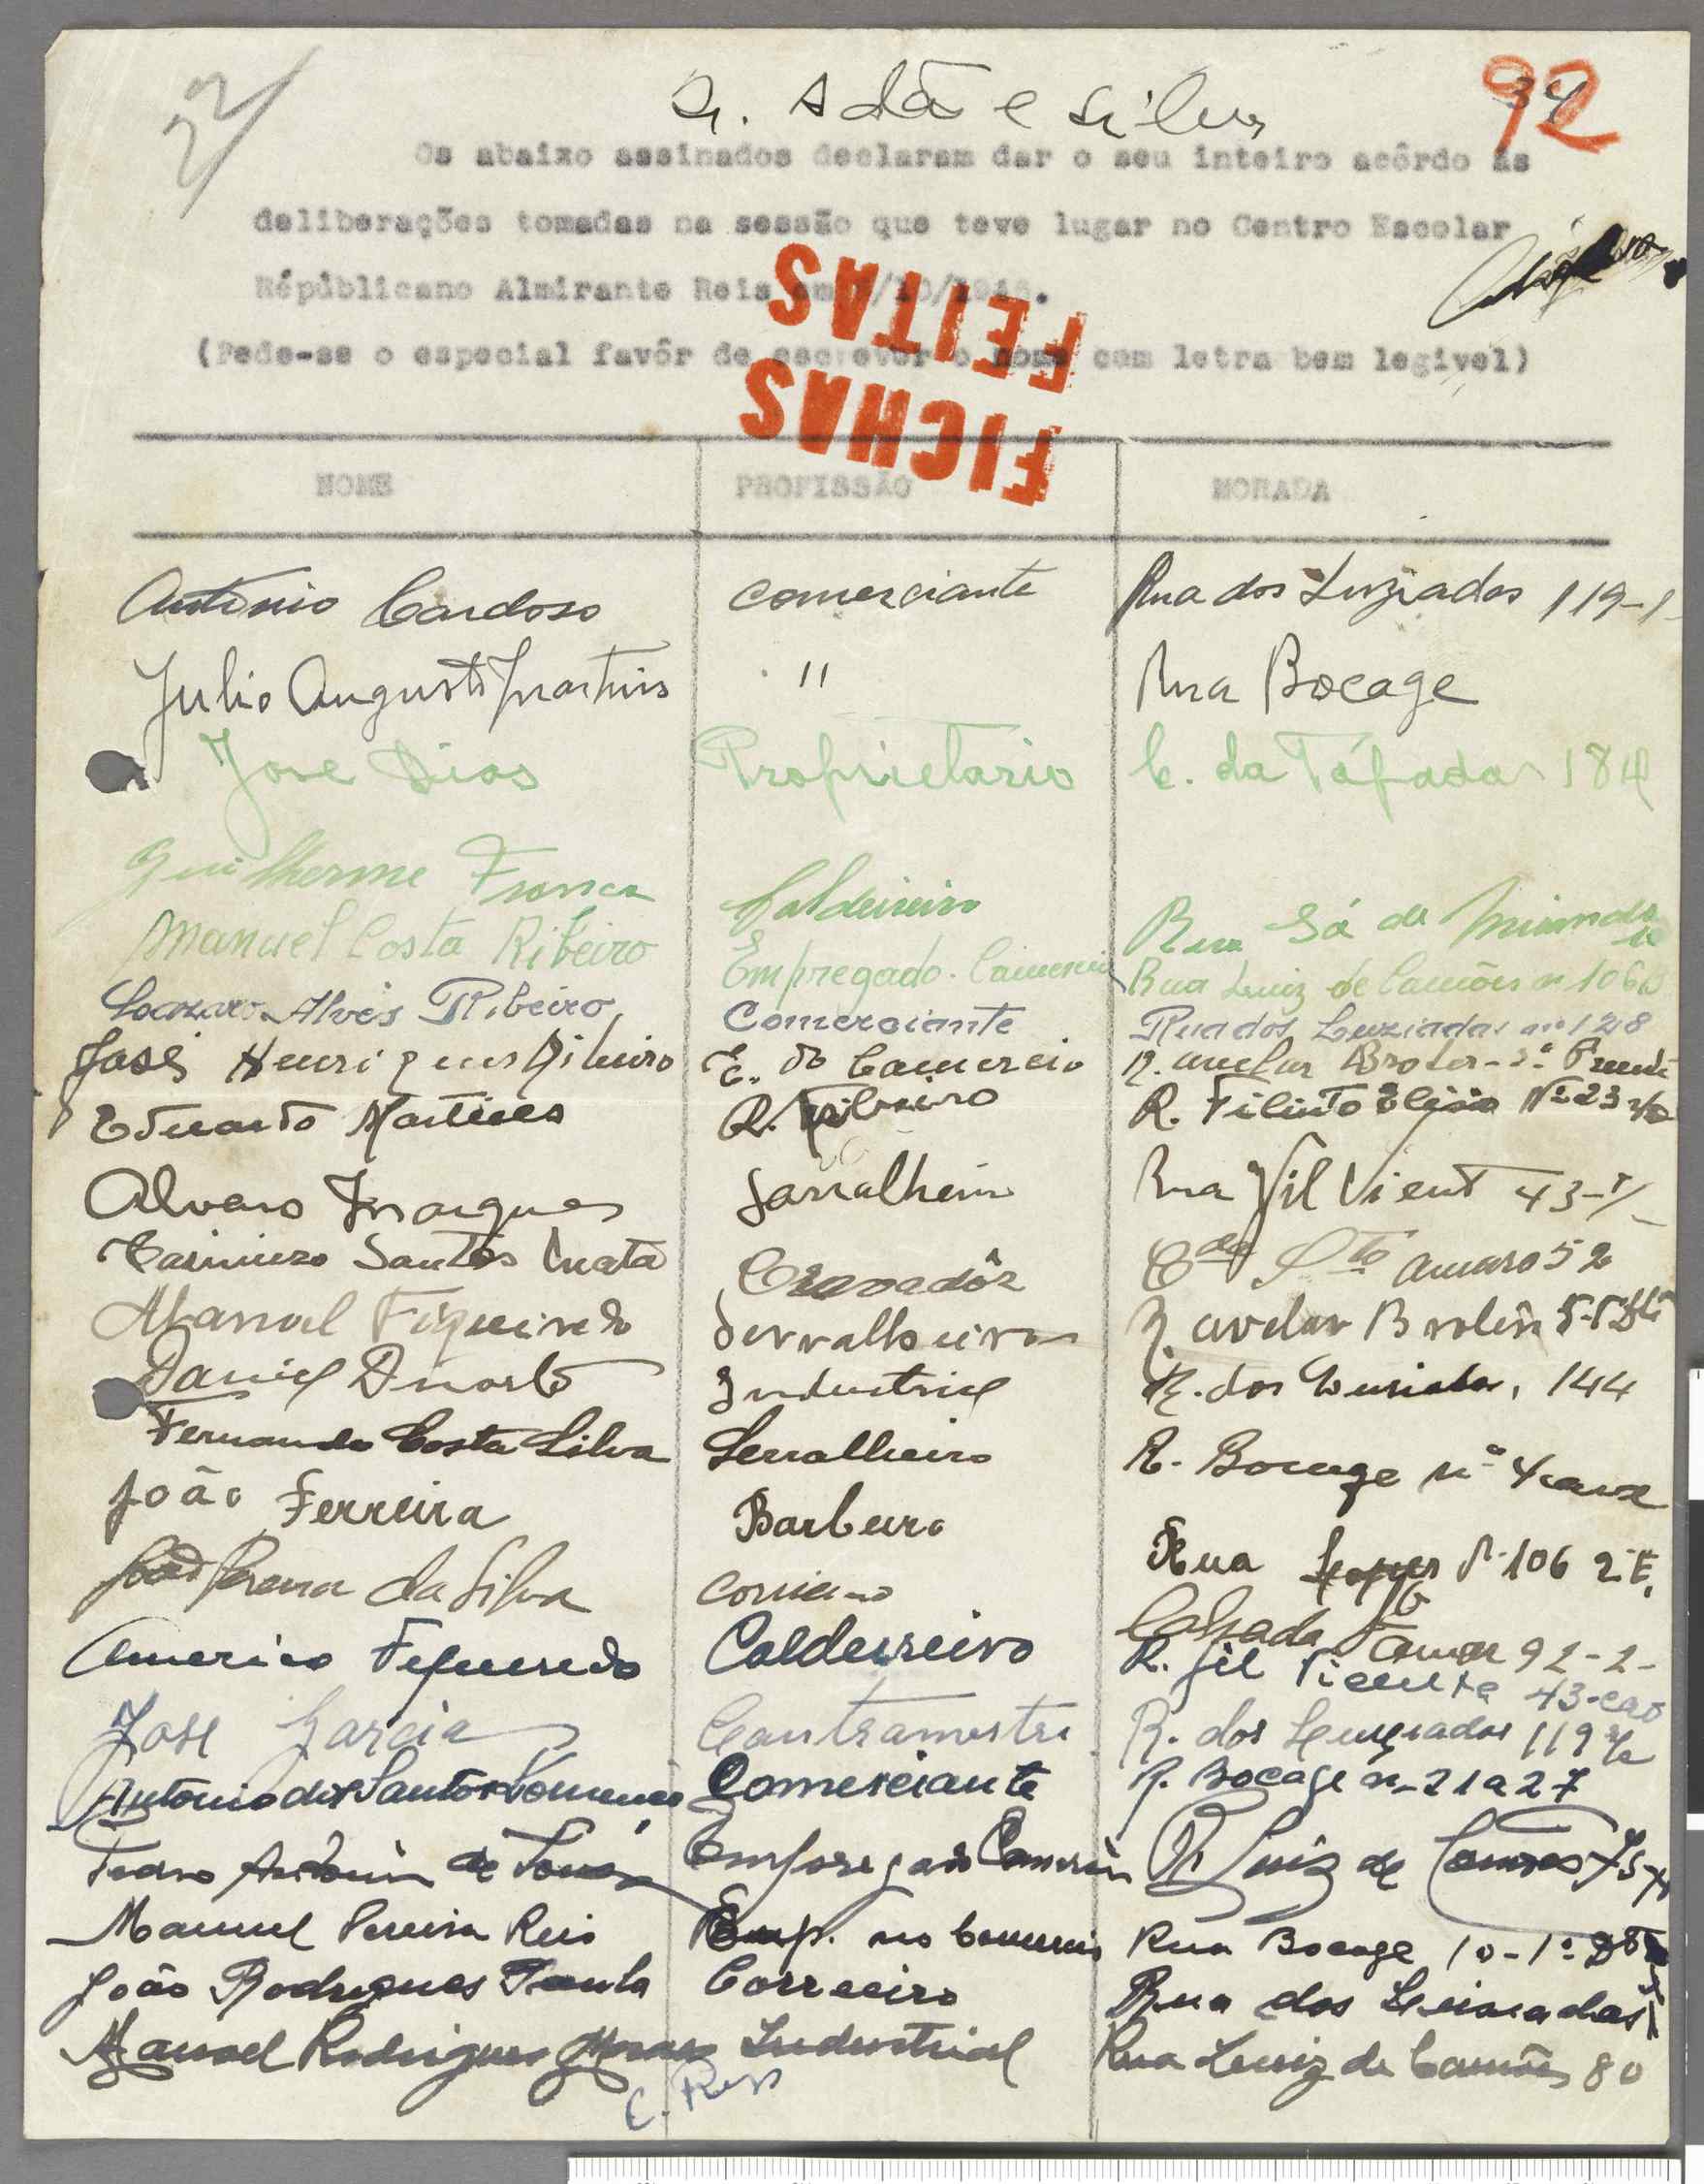 22
A. Adão e Silva
92
Os abaixo assinados declaram dar o seu inteiro acôrdo ás
deliberações tomadas na sessão que teve lugar no Centro Escolar
Républicano Almirante Reis em
(Pede-se o especial favôr de escrever o nome com letra bem legivel)
FICHAS
FEITAS
NOME PROFISSÃO MORADA
Antonio Cardoso comerciante Rua dos Luziadas 119-1
Julio Augusto Martins " Rua Bocage
Jose Dias Proprietario C. da Tápada 184
Guilherme Franca Caldeireiro Rua Sá de Miranda
Manuel Costa Ribeiro Empregado Comercio Rua Luiz de Camões n 106
Lazaro Alves Ribeiro Comerciante Rua dos Luziadas nº 128
José Henriques Ribeiro E. do Comercio R. Avelar Broter
Eduardo Martins R. Filinto Elisio Nº 23
Alvaro Marques Sarralheiro Rua Gil Vicent 43-1
Casimiro Santos Mata Cravadôr Cda Sto Amaro 52
Manuel Figueiredo Serralheiro R. Avelar Broter 5
Daniel Duarte Industrial R. dos Lusiadas, 144
Fernando Costa Silva Serralheiro R. Bocage nº 4 cave
João Ferreira Barbeiro Rua 106 2º E.
Pereira da Silva Calçada 92-2
Americo Figueiredo Caldeireiro R. Gil Vicente 43
Jose Garcia Contramestre R. dos Luziadas 119
Antonio dos Santos Comerciante R. Bocage nº 21 a 27
Pedro António de Sousa Empregado Comércio R Luiz de Camões 75
Manuel Pereira Reis Emp. no Comercio Rua Bocage 10-1º Dto
João Rodrigues Paula Correeiro Rua dos Lusiadas
Manoel Rodrigues Industrial Rua Luiz de Camões 80
C. Reis